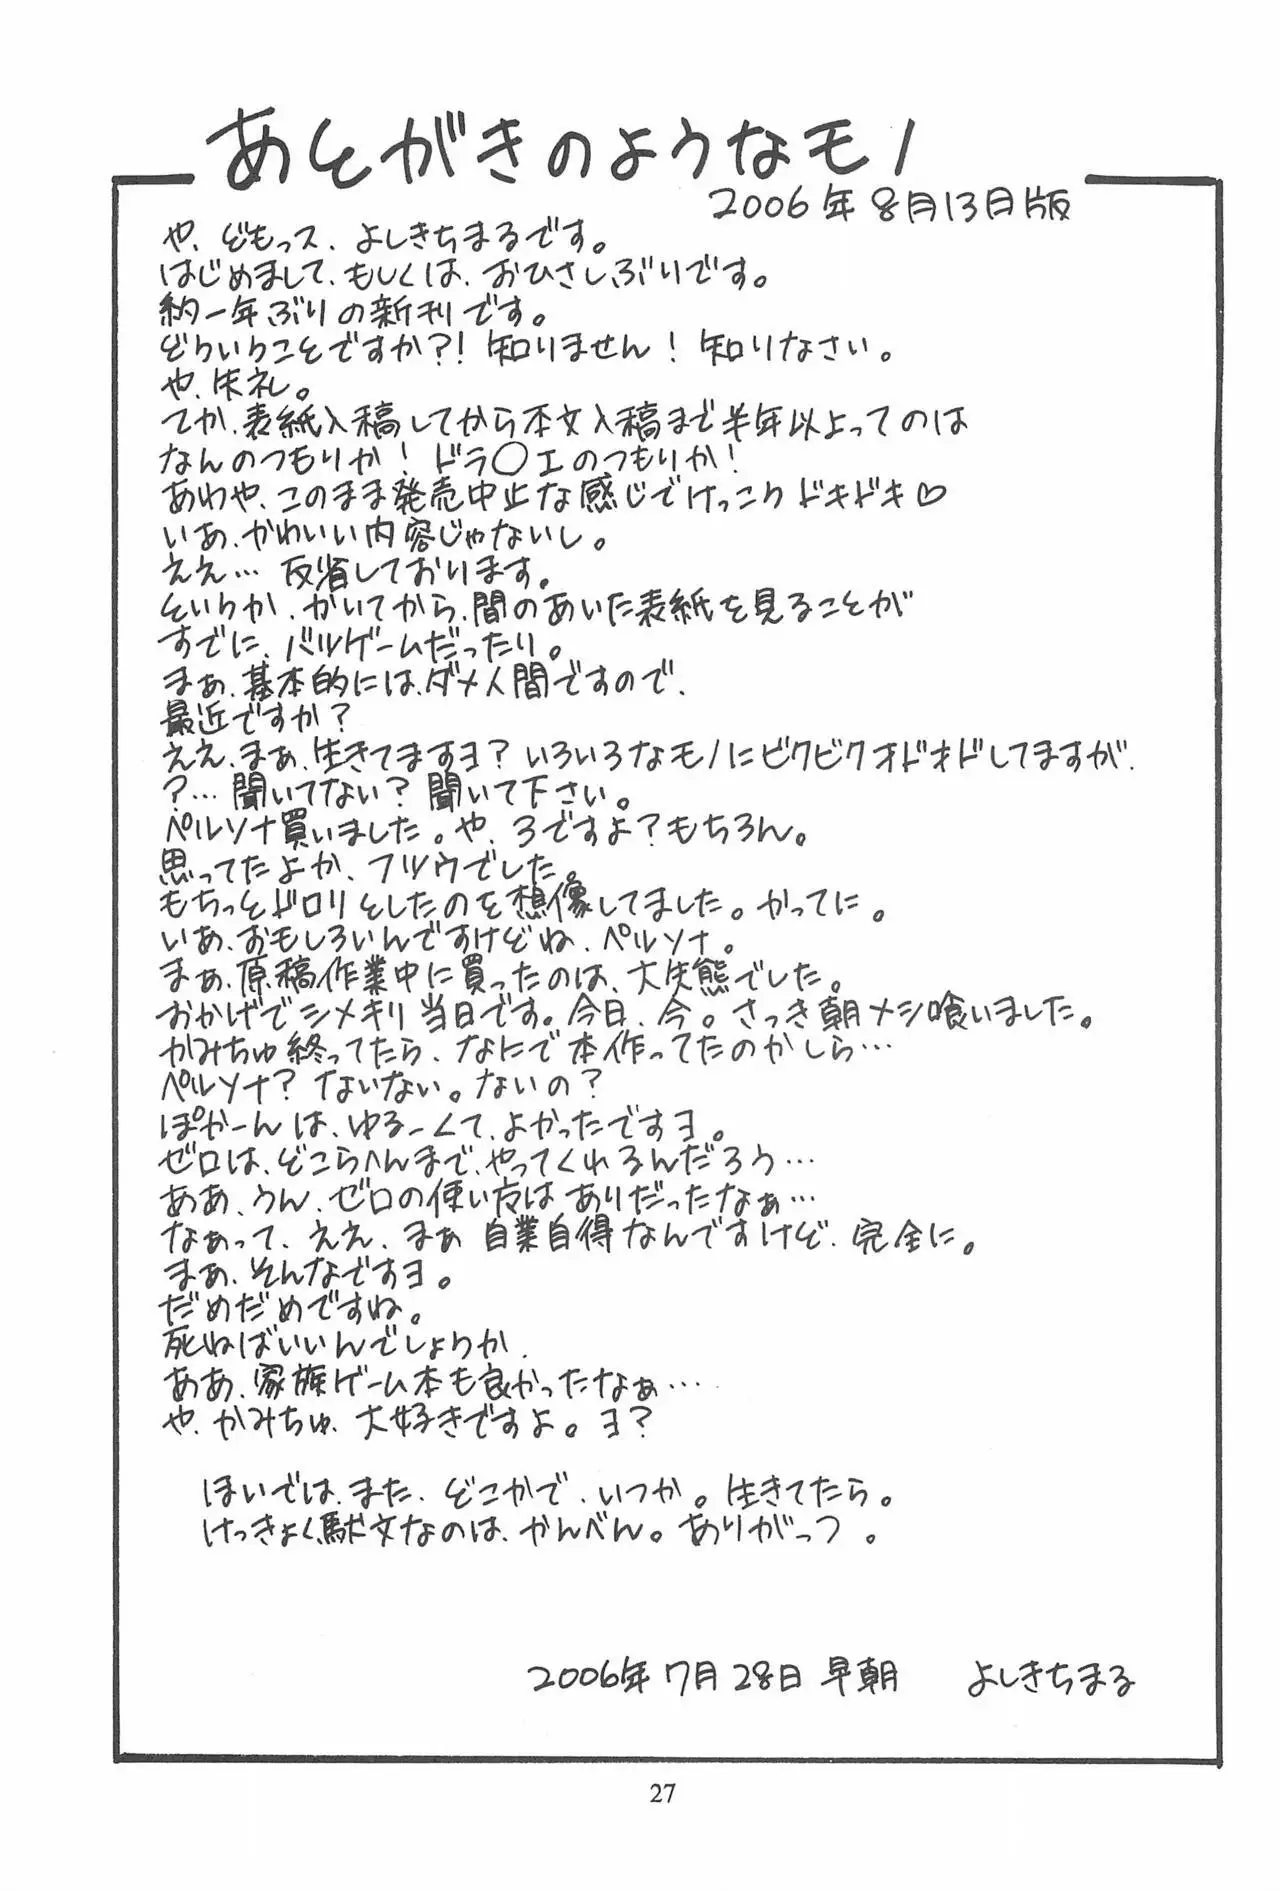 あとがきのようなモノ
2006年8月13日版
や、どもっス、よしきちまるです。
はじめまして、もしくは、おひさしぶりです。
約一年ぶりの新刊です。
どういうことですか?! 知りません! 知りなさい。
や、失礼。
てか、表紙入稿してから本文入稿まで半年以上ってのは
なんのつもりか! ドラ○エのつもりか!
あわや、このまま発売中止な感じでけっこうドキドキ♡
いあ、かわいい内容じゃないし。
ええ… 反省しております。
というか、かいてから、間のあいた表紙を見ることが
すでに、バツゲームだったり。
まぁ、基本的には、ダメ人間ですので、
最近ですか?
ええ、まぁ、生きてますヨ? いろいろなモノにビクビクオドオドしてますが、
?… 聞いてない? 聞いて下さい。
ペルソナ買いました。や、3ですよ? もちろん。
思ってたよか、フツウでした。
もちっとドロリとしたのを想像してました。かってに。
いあ、おもしろいんですけどね、ペルソナ。
まぁ、原稿作業中に買ったのは、大失態でした。
おかげでシメキリ当日です。今日、今。さっき朝メシ喰いました。
かみちゅ終ってたら、なにで本作ってたのかしら…
ペルソナ? ないない。ないの?
ぽかーんは、ゆるーくて、よかったですヨ。
ゼロは、どこらへんまで、やってくれるんだろう…
ああ、うん、ゼロの使い方はありだったなぁ…
なぁって、ええ、まぁ自業自得なんですけど、完全に。
まぁ、そんなですヨ。
だめだめですね。
死ねばいいんでしょうか、
ああ、家族ゲーム本も良かったなぁ…
や、かみちゅ、大好きですよ。ヨ?
ほいでは、また、どこかで、いつか。生きてたら。
けっきょく駄文なのは、かんべん。ありがっつ。
2006年7月28日 早朝 よしきちまる
27